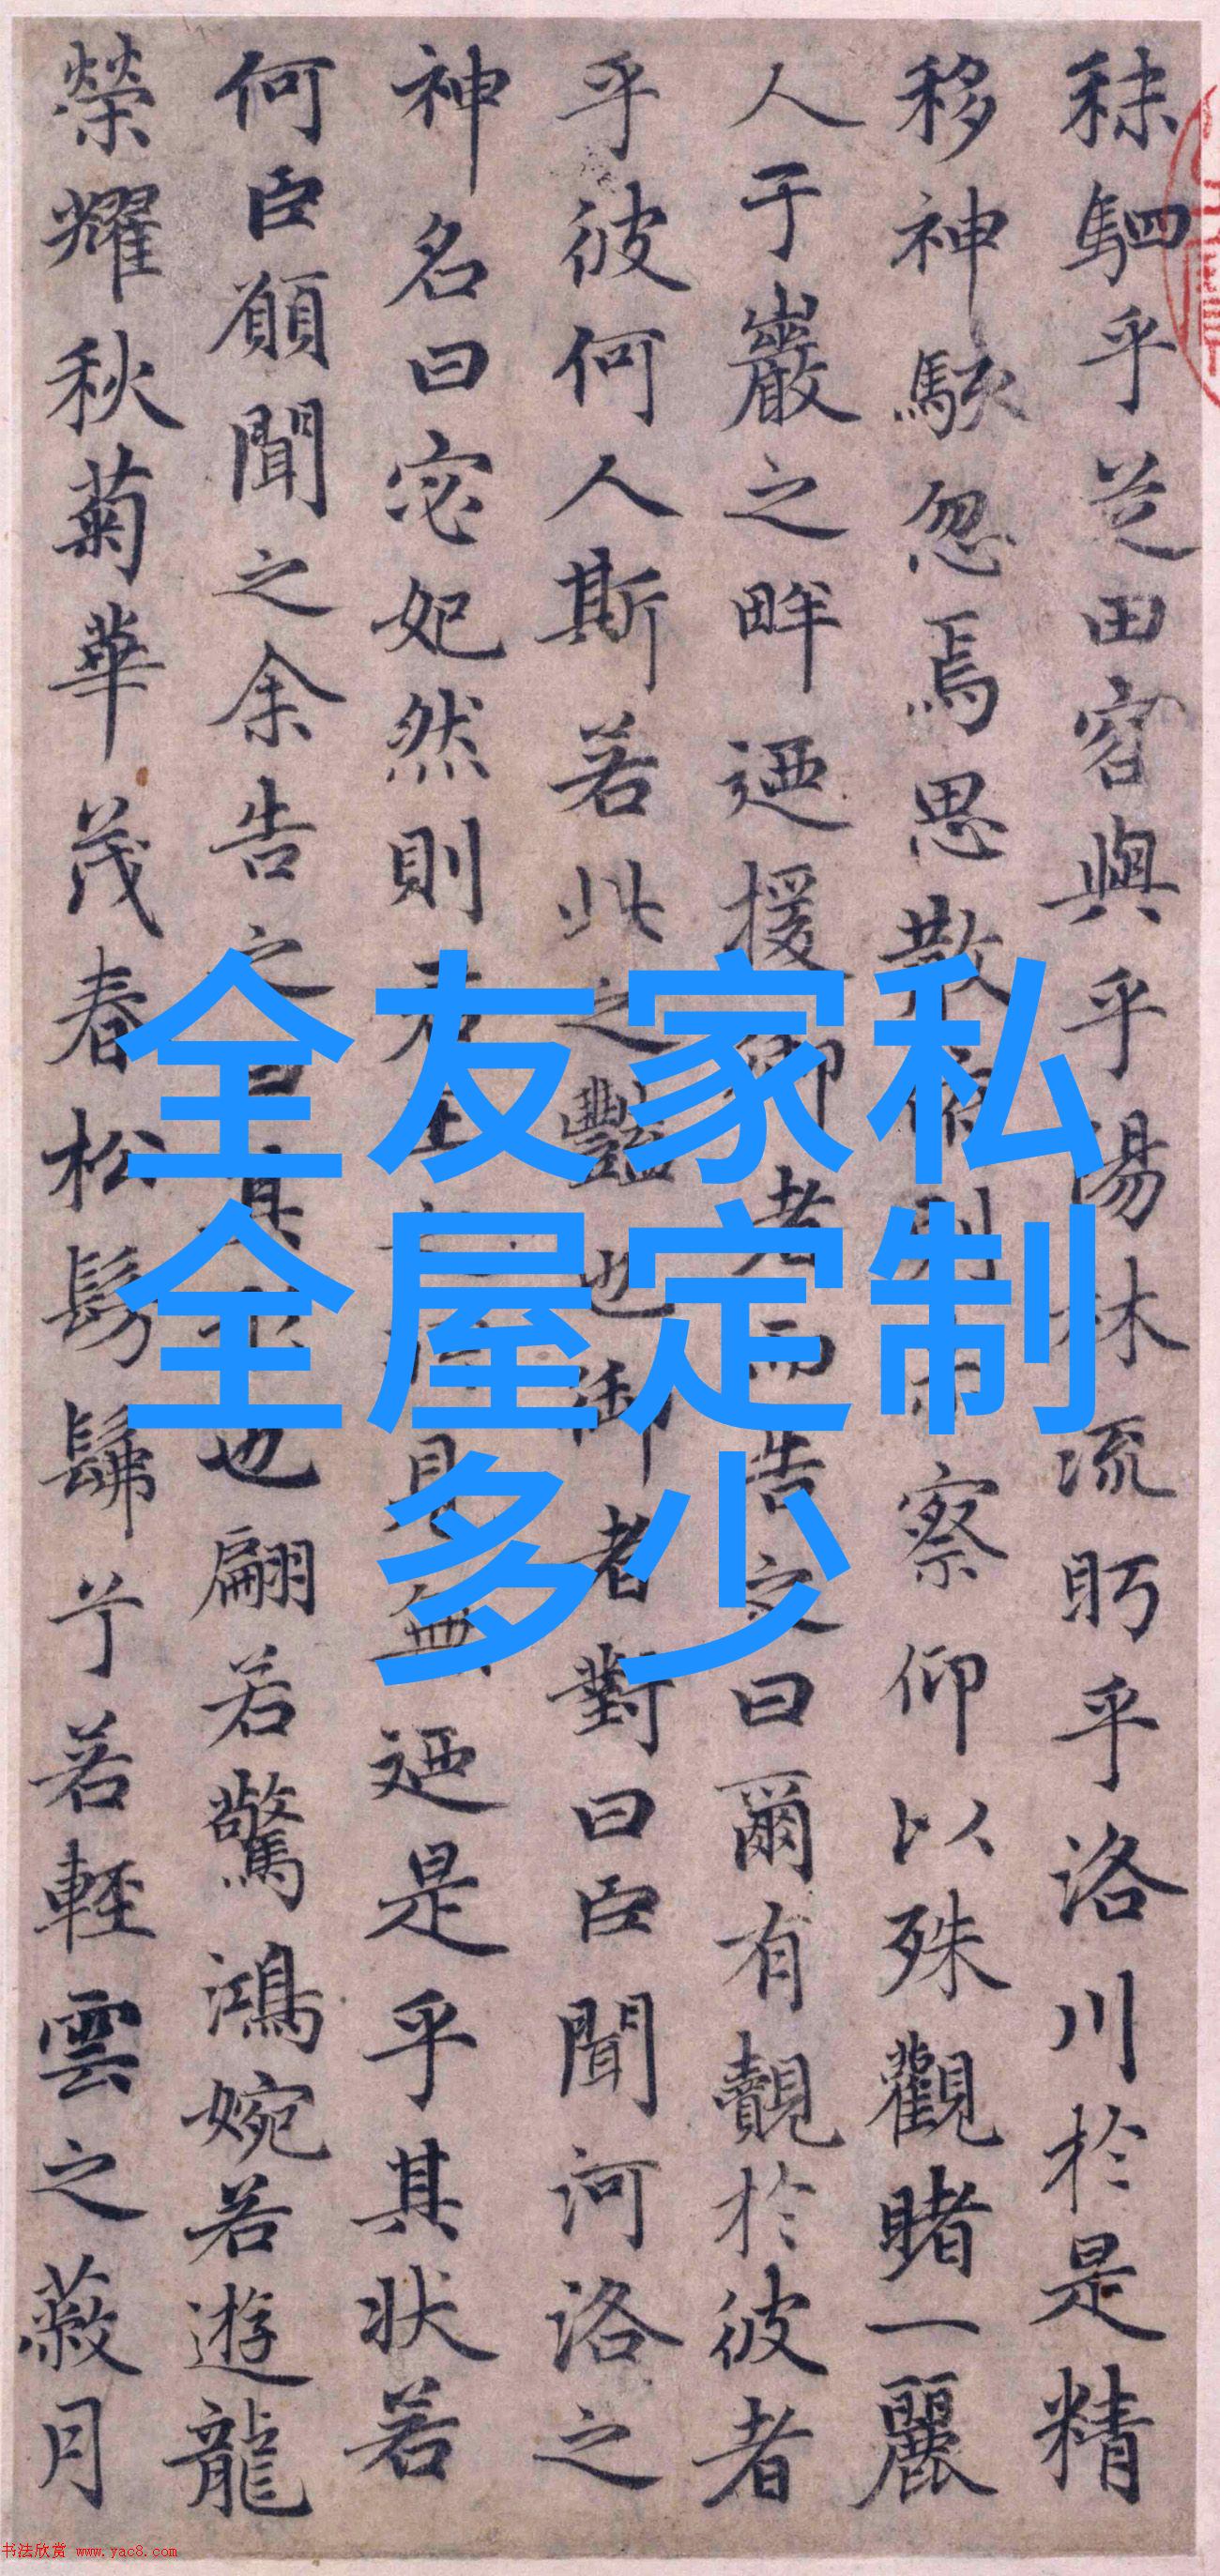 秣駟乎芝田容與乎陽林流眄乎洛川於是精
移神駭忽焉思散俯則未察仰以殊觀睹一麗
人于巖之畔迺援御者而告之曰爾有覿於彼者
乎彼何人斯若此之豔也御者對曰臣聞河洛之
神名曰宓妃然則君王之所見無迺是乎其狀若
何臣願聞之余告之曰其形也翩若驚鴻婉若遊龍
榮耀秋菊華茂春松髣髴兮若輕雲之蔽月
全友家私
全屋定制
多少
书法欣赏 www.yac8.com